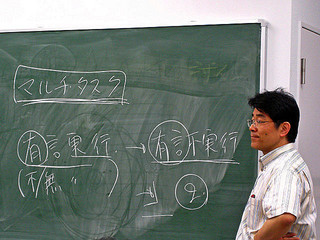 マルチ・タスク
有言実行 → 有言不実行
(不/無 〃 )